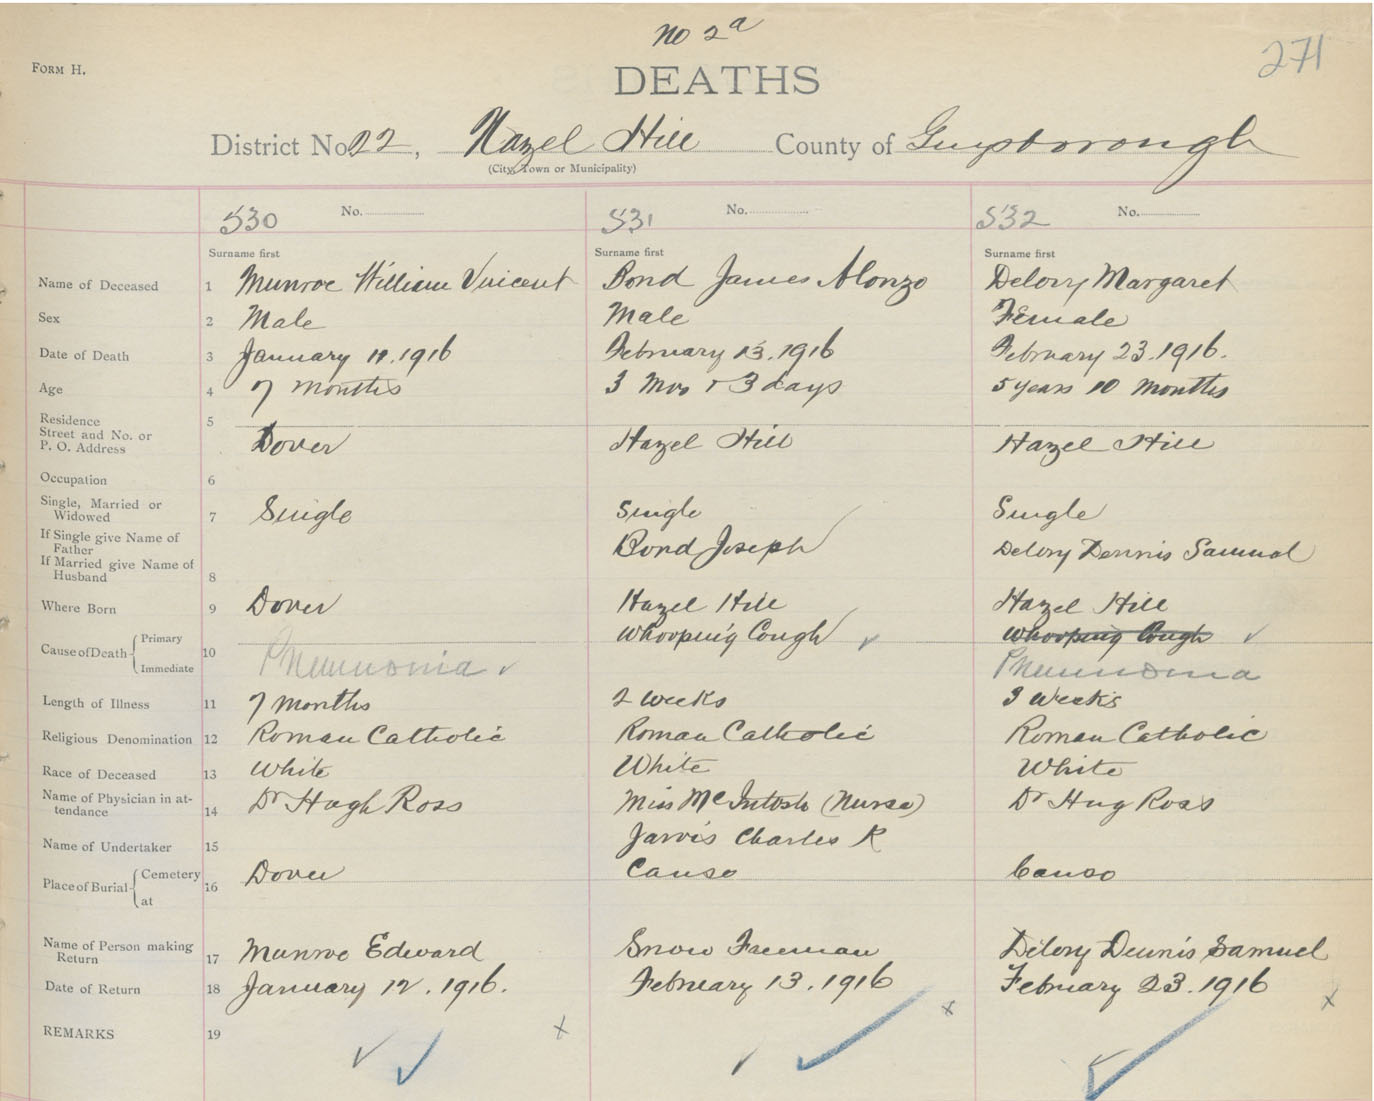 No 2a
271
FORM H.
DEATHS
District No 22, Hazel Hill County of Guysborough
(City, Town or Municipality)
530 No. 531 No. 532 No.
Surname first Surname first Surname first
Name of Deceased 1 Munroe William Vincent Bond James Alonzo Delory Margaret
Sex 2 Male Male Female
Date of Death 3 January 11. 1916 February 13. 1916 February 23. 1916.
Age 4 7 months 3 Mos + 3 days 5 years 10 Months
Residence 5
Street and No. or
P. O. Address Dover Hazel Hill Hazel Hill
Occupation 6
Single, Married or
Widowed 7 Single Single Single
If Single give Name of
Father Bond Joseph Delory Dennis Samual
If Married give Name of
Husband 8
Where Born 9 Dover Hazel Hill Hazel Hill
Cause of Death Primary 10 Whooping Cough Whooping Cough
Immediate Pneumonia Pneumonia
Length of Illness 11 7 months 2 weeks 3 Weeks
Religious Denomination 12 Roman Catholic Roman Catholic Roman Catholic
Race of Deceased 13 White White White
Name of Physician in at-
tendance 14 Dr Hugh Ross Miss McIntosh (Nurse) Dr Hug Ross
Name of Undertaker 15 Jarvis Charles R
Place of Burial Cemetery 16 Dover Canso Canso
at
Name of Person making
Return 17 Munroe Edward Snow Freeman Delory Dennis Samuel
Date of Return 18 January 12. 1916. February 13. 1916 February 23. 1916
REMARKS 19